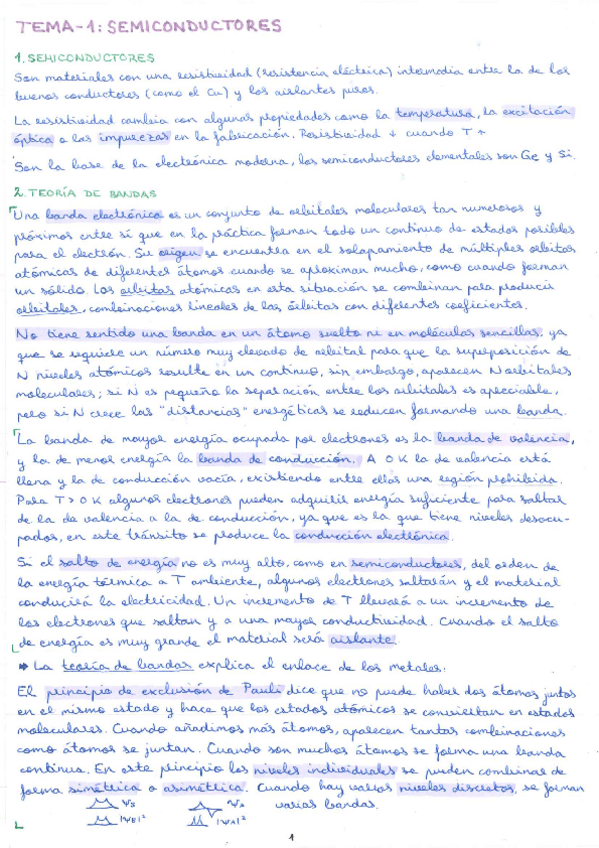 TEMA-1: SEMICONDUCTORES
1. SEMICONDUCTORES
Son materiales con una resistividad (resistencia eléctrica) intermedia entre la de los
buenos conductores (como el Cu) y los aislantes puros.
La resistividad cambia con algunas propiedades como la temperatura, la excitación
óptica o las impurezas en la fabricación. Resistividad ↓ cuando T ↑
Son la base de la electrónica moderna, los semiconductores elementales son Ge y Si.
2. TEORÍA DE BANDAS
Una banda electrónica es un conjunto de orbitales moleculares tan numerosos y
próximos entre sí que en la práctica forman todo un continuo de estados posibles
para el electrón. Su origen se encuentra en el solapamiento de múltiples orbitas
atómicas de diferentes átomos cuando se aproximan mucho, como cuando forman
un sólido. Las orbitas atómicas en esta situación se combinan para producir
orbitales, combinaciones lineales de las órbitas con diferentes coeficientes.
No tiene sentido una banda en un átomo suelto ni en moléculas sencillas, ya
que se requiere un número muy elevado de orbital para que la superposición de
N niveles atómicos resulte en un continuo, sin embargo, aparecen N orbitales
moleculares; si N es pequeño la separación entre los orbitales es apreciable,
pero si N crece las "distancias" energéticas se reducen formando una banda.
La banda de mayor energía ocupada por electrones es la banda de valencia,
y la de menor energía la banda de conducción. A 0 K la de valencia está
llena y la de conducción vacía, existiendo entre ellas una región prohibida.
Para T > 0 K algunos electrones pueden adquirir energía suficiente para saltar
de la de valencia a la de conducción, ya que es la que tiene niveles desocu-
pados, en este tránsito se produce la conducción electrónica.
Si el salto de energía no es muy alto, como en semiconductores, del orden de
la energía térmica a T ambiente, algunos electrones saltarán y el material
conducirá la electricidad. Un incremento de T llevará a un incremento de
los electrones que saltan y a una mayor conductividad. Cuando el salto
de energía es muy grande el material será aislante.
➡ La teoría de bandas explica el enlace de los metales:
El principio de exclusión de Pauli dice que no puede haber dos átomos juntos
en el mismo estado y hace que los estados atómicos se conviertan en estados
moleculares. Cuando añadimos más átomos, aparecen tantas combinaciones
como átomos se juntan. Cuando son muchos átomos se forma una banda
continua. En este principio los niveles individuales se pueden combinar de
forma simétrica o asimétrica. Cuando hay varios niveles discretos, se forman
Ψs ΨA varias bandas.
|Ψs|² |ΨA|²
1